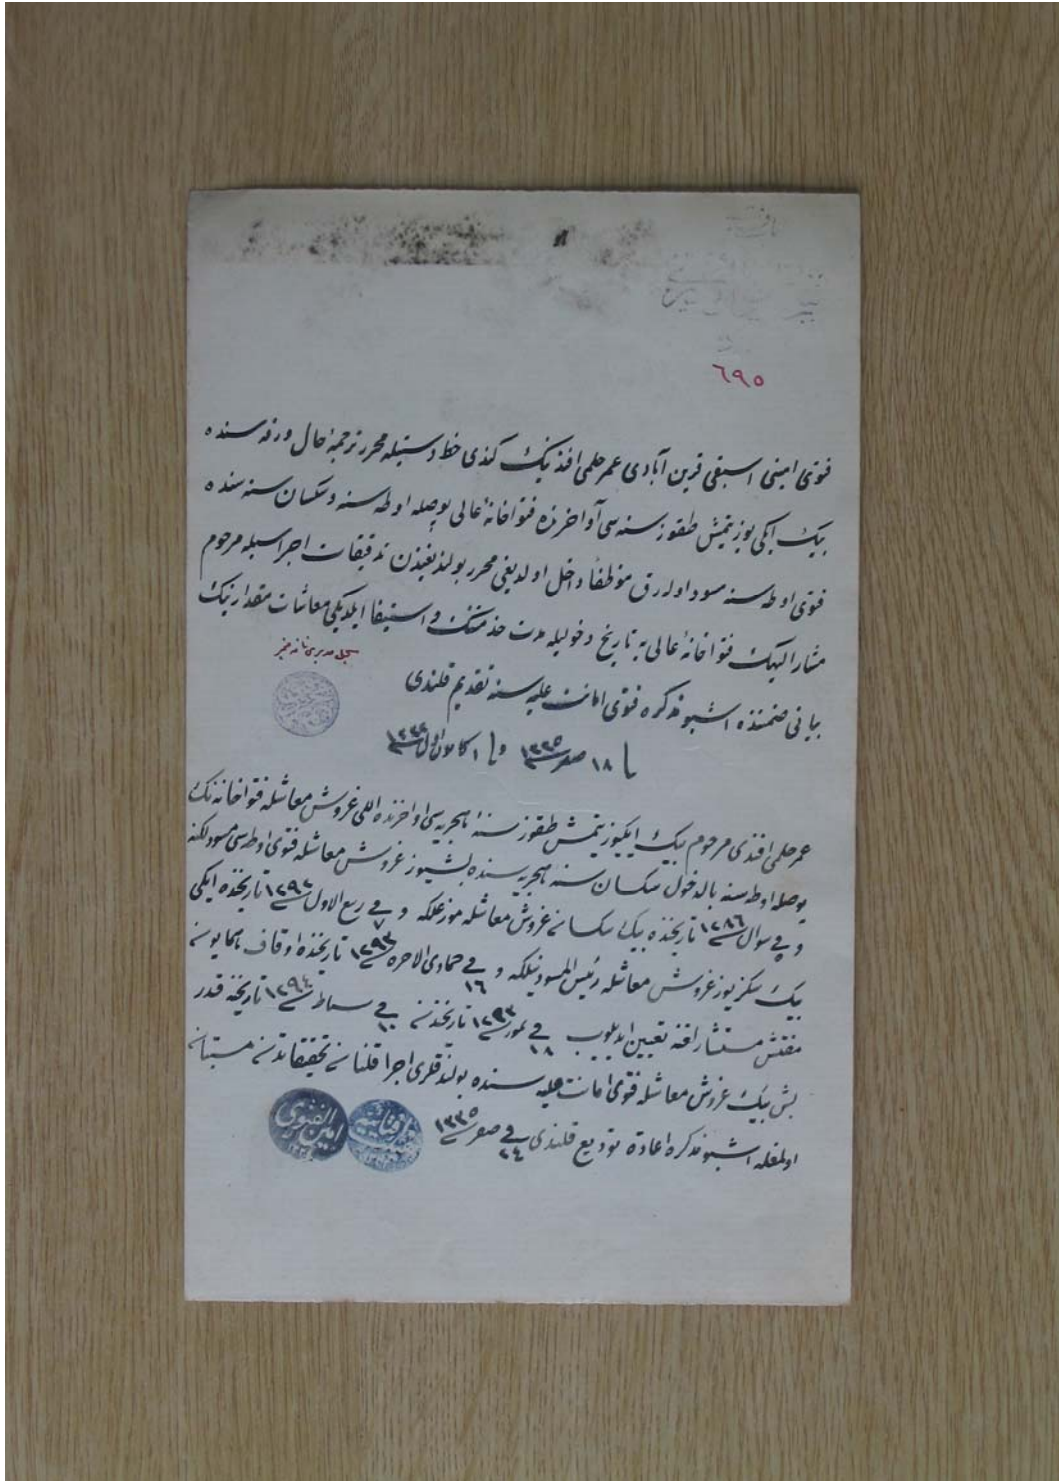 ٦٩٥
فتوى امينى اسبقى قرين آبادى عمر حلمى افندينك كندى خط دستيله محرر ترجمۀ حال ورقه سنده
بيك ايكى يوز يتمش طقوز سنه سى آواخرنده فتواخانۀ عالى پوصله اوطه سنه و سكسان سنه سنده
فتوى اوطه سنه مسود اوله رق موظفا داخل اولديغى محرر بولنديغندن تدقيقات اجراسيله مرحوم
مشار اليهك فتواخانۀ عالى يه تاريخ دخوليله مدت خدمتنك و استيفا ايلديكى معاشات مقدارينك
بيانى ضمننده اشبو تذكره فتوى امانت عليه سنه تقديم قلندى
سجل مديرى
فى ١٨ صفر سنه ١٣٣٥ و فى ١ كانون اول سنه ١٣٣٢
عمر حلمى افندى مرحوم بيك ايكيوز يتمش طقوز سنۀ هجريه سى اواخرنده اللى غروش معاشله فتواخانه نك
پوصله اوطه سنه بالدخول سكسان سنه هجريه سنده بشيوز غروش معاشله فتوى اوطه سى مسودلكنه
و فى شوال سنه ١٢٨٦ تاريخنده بيك غروش معاشله موزعلكه و فى ربيع الاول سنه ١٢٩٢ تاريخنده ايكى
بيك سكز يوز غروش معاشله رئيس المسودينلكه و فى ١٦ جمادى الاخره سنه ١٢٩٣ تاريخنده اوقاف همايون
مفتش مستشارلغنه تعيين ايديلوب فى ١٨ تموز سنه ١٢٩٣ تاريخندن فى شباط سنه ١٢٩٤ تاريخنه قدر
بش بيك غروش معاشله فتوى امانت عليه سنده بولندقلرى اجرا قلنان تحقيقاتدن مستبان
اولمغله اشبو تذكره اعادة توديع قلندى فى ٢٤ صفر سنه ١٣٣٥
امين الفتوى